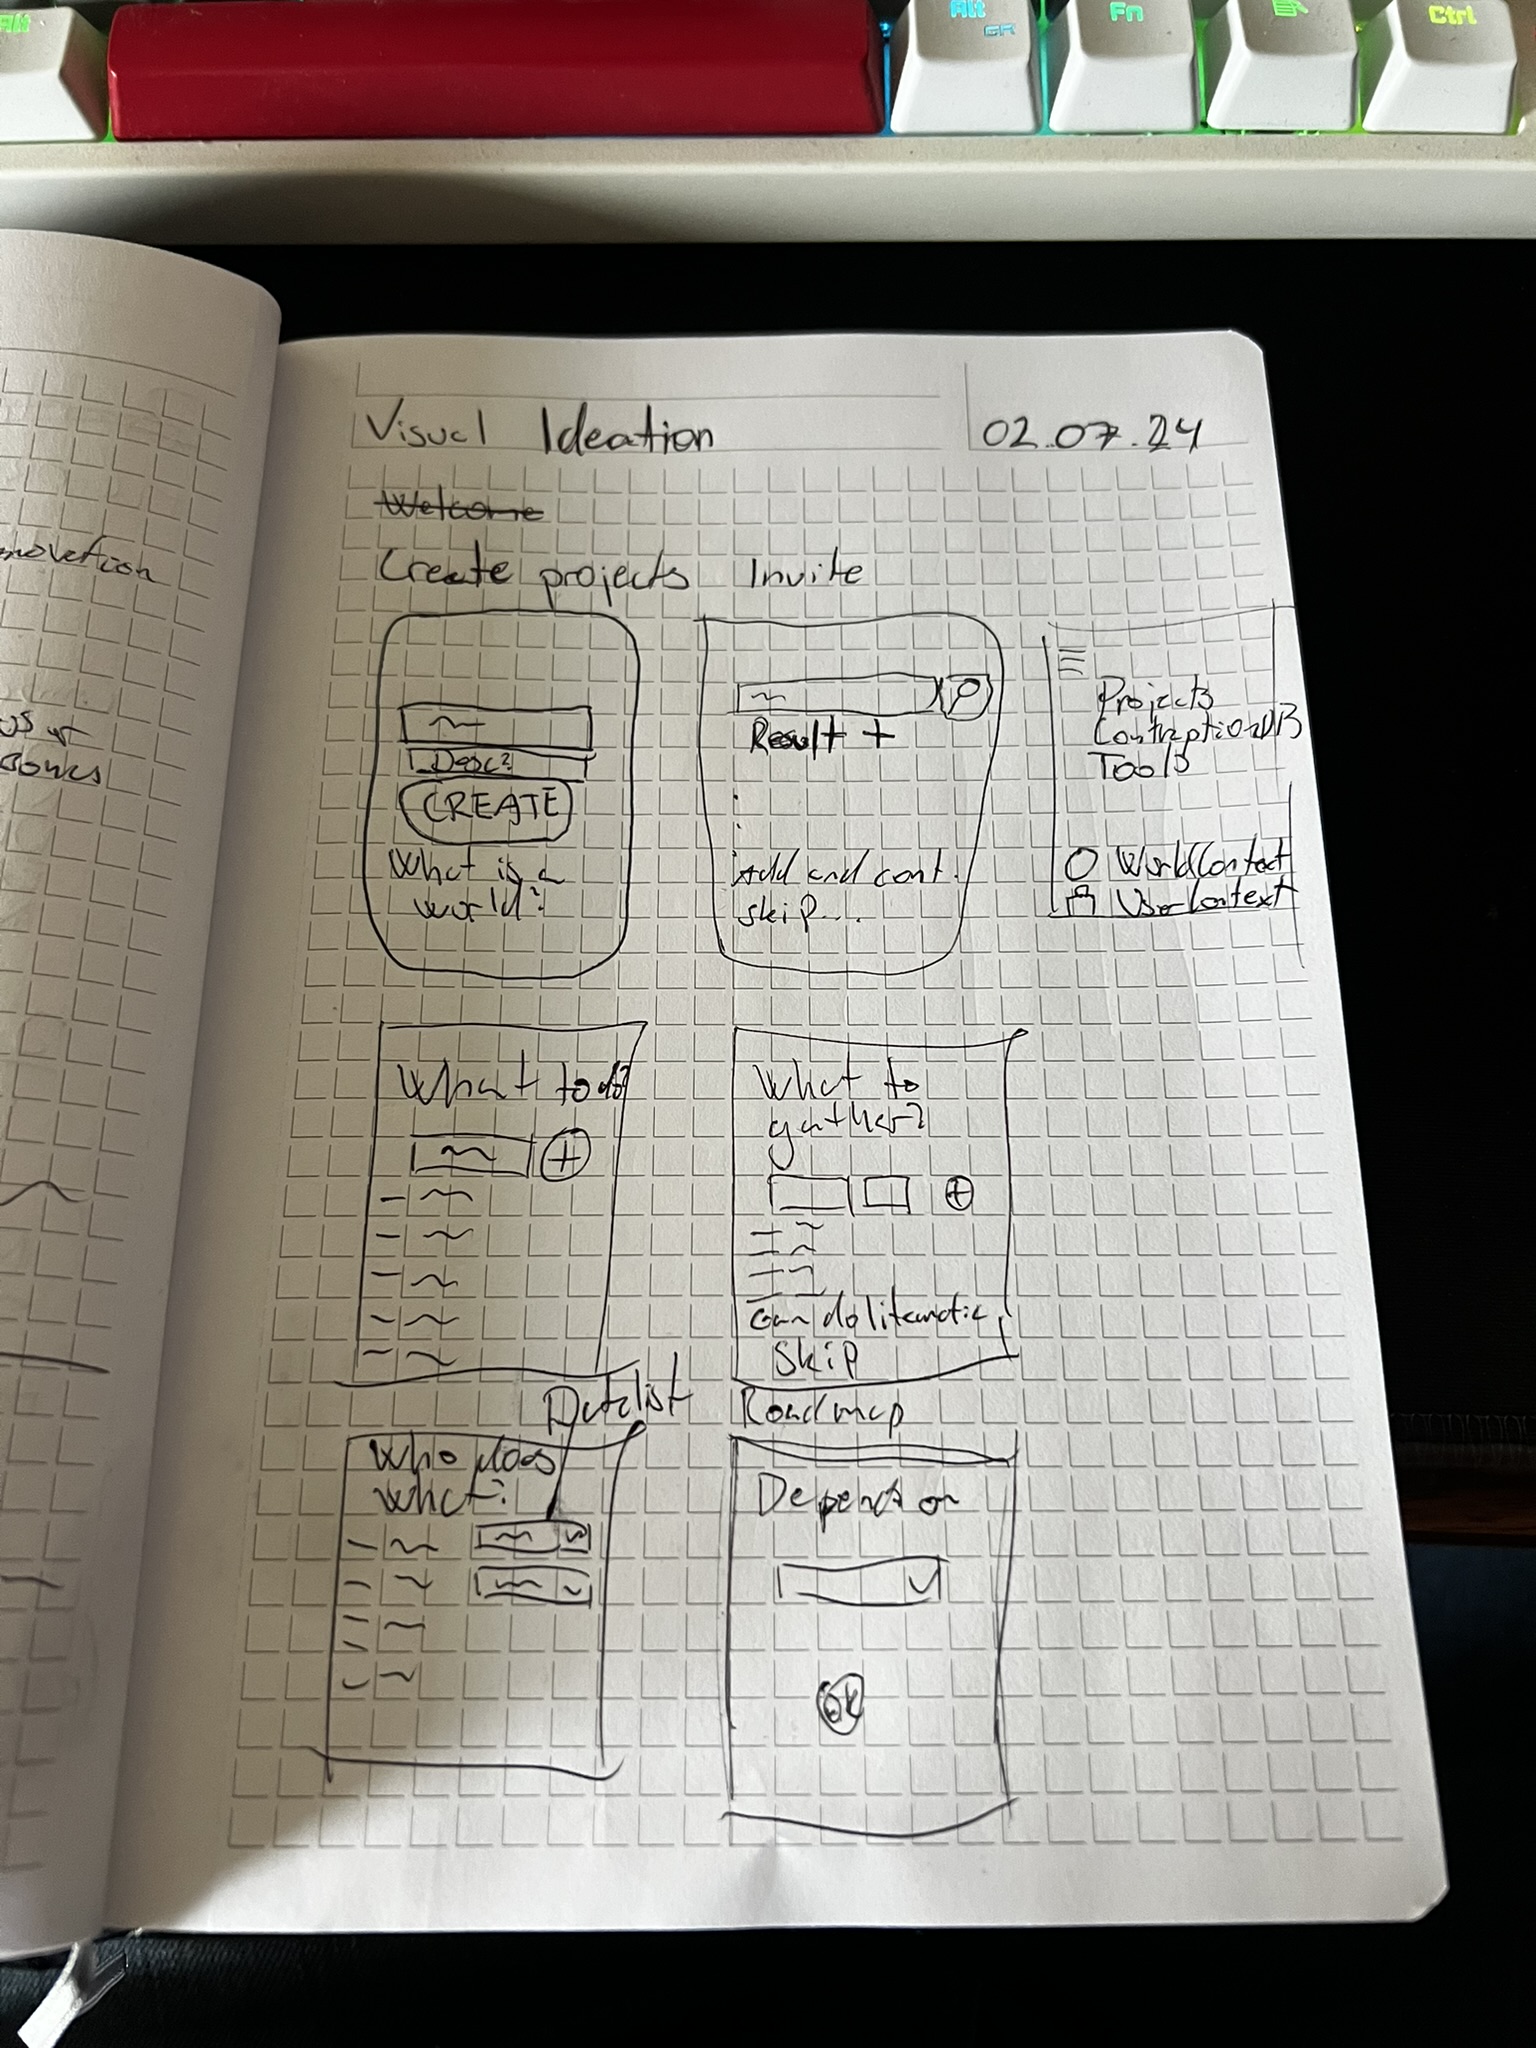 Alt
Alt
GR
Fn
Ctrl
Visual Ideation
02.07.24
Welcome
Create projects
Invite
Desc?
CREATE
What is a
world?
Result +
Add and cont.
skip...
Projects
ContraptionDB
Tools
WorldContext
UserContext
What to do?
What to
gather?
can do litematic
skip
Datalist
Roadmap
Who does
what?
Depends on
OK